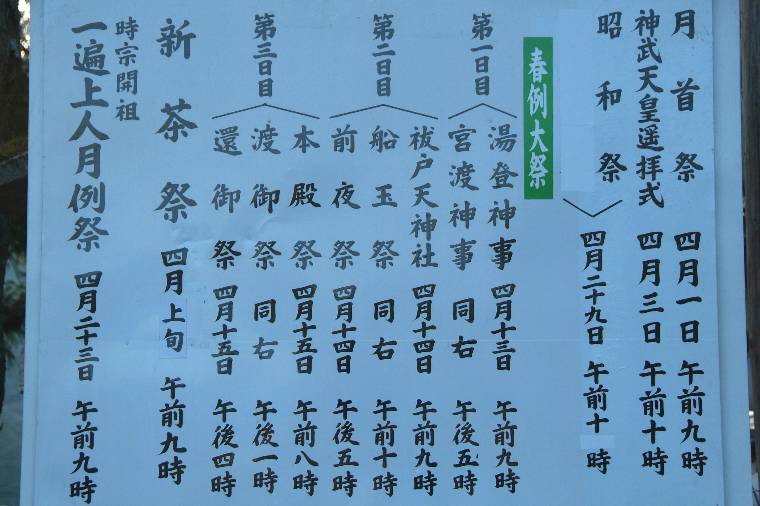 月首祭 四月一日 午前九時
神武天皇遥拝式 四月三日 午前十時
昭和祭 四月二十九日 午前十時
春例大祭
第一日目
湯登神事 四月十三日 午前九時
宮渡神事 同右 午後五時
第二日目
祓戸天神社 四月十四日 午前九時
船玉祭 同右 午前十時
前夜祭 四月十四日 午後五時
第三日目
本殿祭 四月十五日 午前八時
渡御祭 同右 午後一時
還御祭 四月十五日 午後四時
新茶祭 四月上旬 午前九時
時宗開祖
一遍上人月例祭 四月二十三日 午前九時